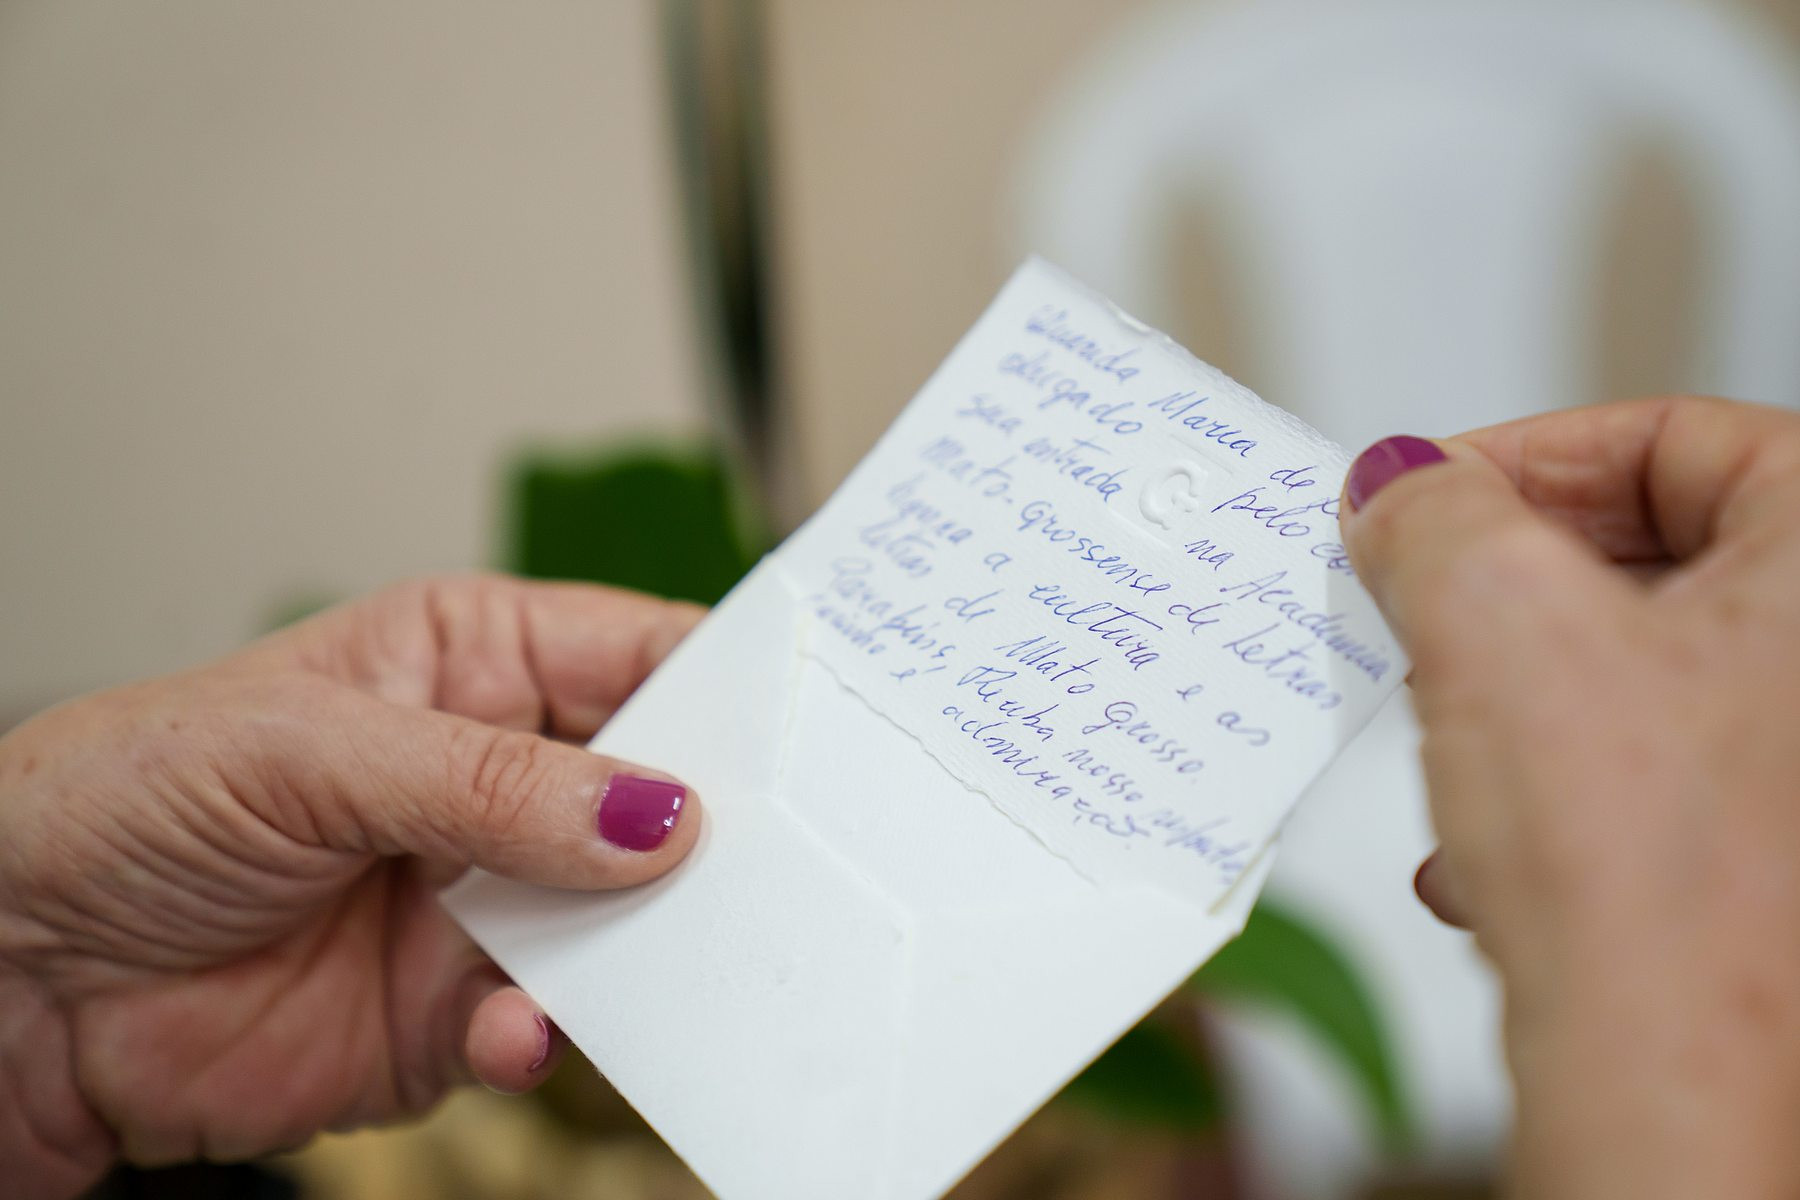 Querida Maria de
obrigado pelo
sua entrada na Academia
Mato-Grossense de Letras
a cultura e as
letras de Mato Grosso.
Parabéns, Receba nosso
carinho e admiração.
G